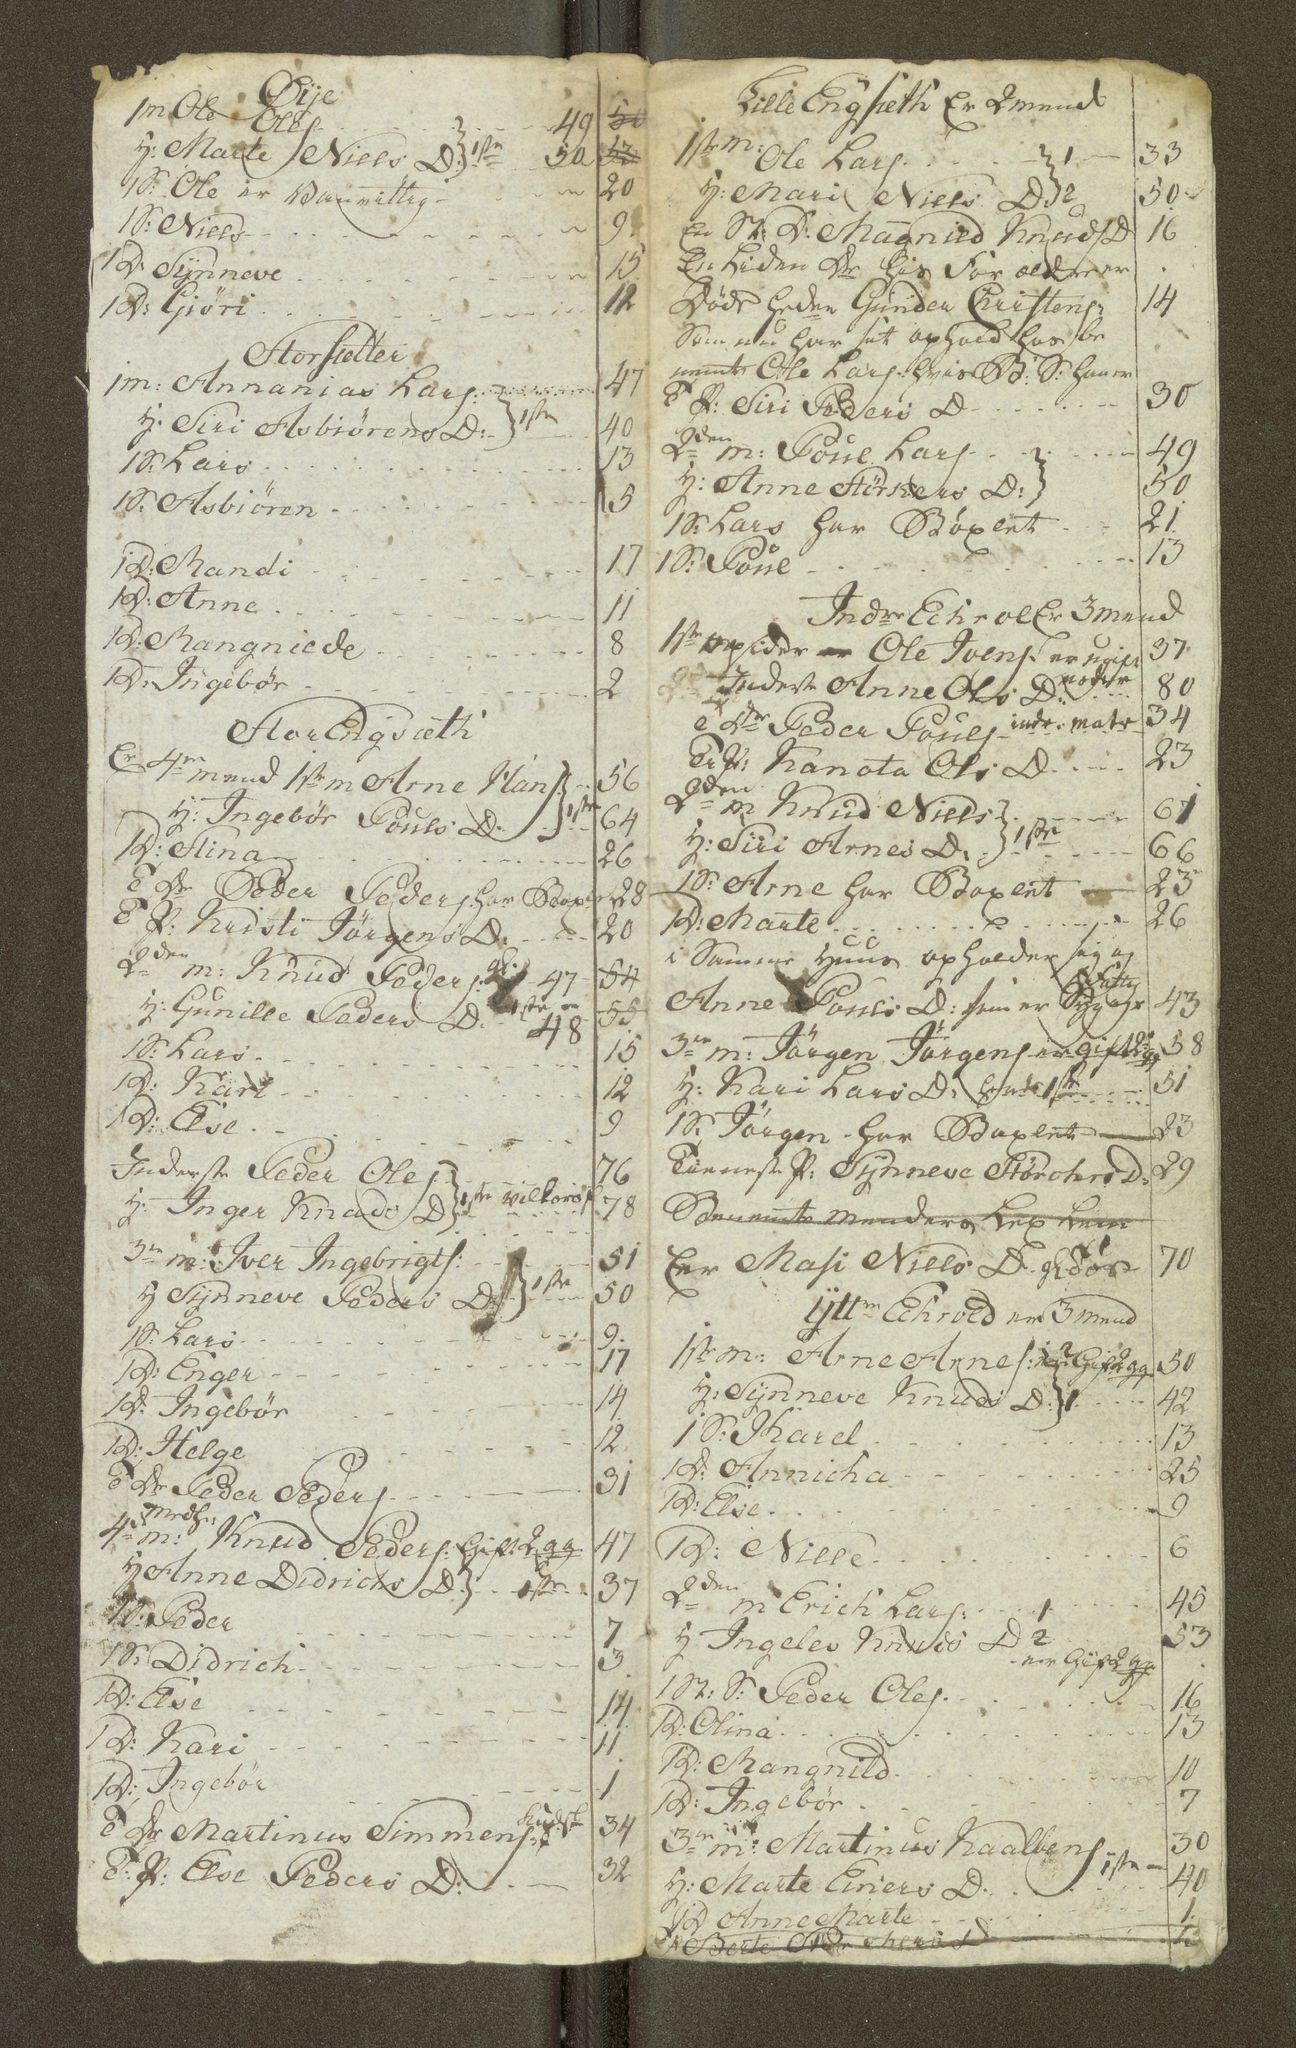 Øije
1m Ole Ols 49 50
H: Marte Niels D: 1ste 50 53
1S: Ole er Vanvittig 20
1S: Niels 9
1D: Synneve 15
1D: Giöri 12
Storsætter
1m: Annanias Lars: 47
H: Siri Asbiörens D: 1ste 40
1S: Lars 13
1S: Asbiören 5
1D: Randi 17
1D: Anne 11
1D: Mangniede 8
1D: Ingebør 2
Stor Engsæth
Er 4re mend 1ste m Arne Hans 56
H: Ingebör Pouls D: 1ste 64
1D: Stina 26
T Dr Peder Peders har Boxl 28
T P: Kristi Jörgens D: 20
2den m: Knud Peders: 47 54
H: Gunille Peders D: 1ste 48 55
1S: Lars 15
1D: Kari 12
1D: Else 9
Inderste Peder Oles 76
H: Inger Knuds D 1ste Vilkors 78
3die m: Iver Ingebrigts: 51
H Synneve Peders D: 1ste 50
1S: Lars 9
1D: Enger 17
1D: Ingebör 14
1D: Helge 12
T Dr Peder Peders 31
4de m: Medh: Knud Peders: Gift 2 gg 47
H Anne Didrichs D: 1ste 37
1S: Peder 7
1S: Didrich 3
1D: Else 14
1D: Kari 11
1D: Ingebör 1
T Dr Martinus Simmens: 34
T: P: Else Peders D: 32
Lille Engsæth Er 2 mend
1ste m: Ole Lars 1 33
H: Mari Niels D 2 50
En St: D: Magnild Knuds D 16
En Liden Dr his For ælder er
Döde heder Gunder Christens: 14
Som nu har sit ophold hos be
nemte Ole Lars: hvis B: S: han er
T P: Siri Peders D 30
2den m: Poul Lars 49
H: Anne Störkers D: 50
1S: Lars har Boxlet 21
1S: Poul 13
Indre Echroe Er 3 mend
1ste opsider Ole Ivers er ugift 37
Inderste Anne Ols D: moder 80
T Dr Peder Pouls 34
T: P: Kanota Ols D 23
2den m Knud Niels 61
H: Siri Arnes D: 1ste 66
1S: Arne har Boxlet 23
1D: Marte 26
i Samme Huus opholder sig og
Anne Pouls D: som er Fattig Syg 43
3die m: Jörgen Jörgens er gift 2 gg 58
H: Kari Lars D: hendes 1ste 51
1S: Jörgen har Boxlet 23
Tieneste P: Synneve Störchers D: 29
Benemte menders
Er Masi Niels D 70
Yttre Echroed er 3 mend
1ste m: Arne Arnes: er Gift 2 gg 50
H: Synneve Knuds D: 1 42
1S: Karel 13
1D: Annicha 25
1D: Else 9
1D: Nille 6
2den m Erich Lars: 1 45
H Ingeles Knuds D 2 53
er Gift 2 gg
1St: S: Peder Oles 16
1D: Olina 13
1D: Mangnild 10
1D: Ingebör 7
3die m: Martinus Kaalbens 30
H: Marte Einers D: 1ste 40
1D Anne Marte 1